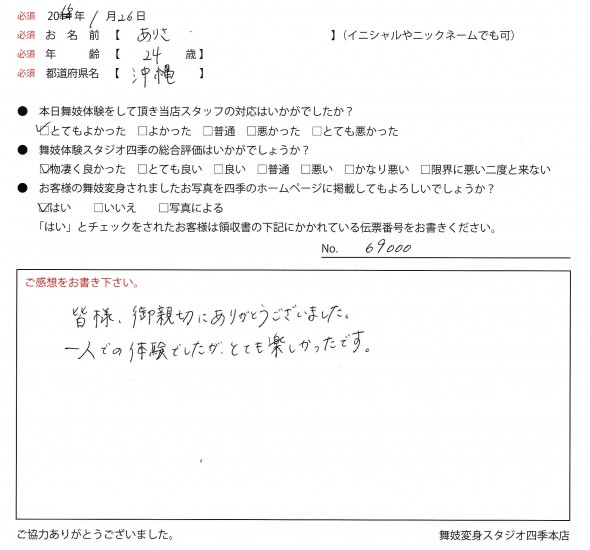 必須 20年 1月26日
必須 お 名 前 【 ありさ 】（イニシャルやニックネームでも可）
必須 年 齢 【 24 歳】
必須 都道府県名 【 沖縄 】
● 本日舞妓体験をして頂き当店スタッフの対応はいかがでしたか？
☑とてもよかった □よかった □普通 □悪かった □とても悪かった
● 舞妓体験スタジオ四季の総合評価はいかがでしょうか？
☑物凄く良かった □とても良い □良い □普通 □悪い □かなり悪い □限界に悪い二度と来ない
● お客様の舞妓変身されましたお写真を四季のホームページに掲載してもよろしいでしょうか？
☑はい □いいえ □写真による
「はい」とチェックをされたお客様は領収書の下記にかかれている伝票番号をお書きください。
No. 69000
ご感想をお書き下さい。
皆様、御親切にありがとうございました。
一人での体験でしたが、とても楽しかったです。
ご協力ありがとうございました。 舞妓変身スタジオ四季本店